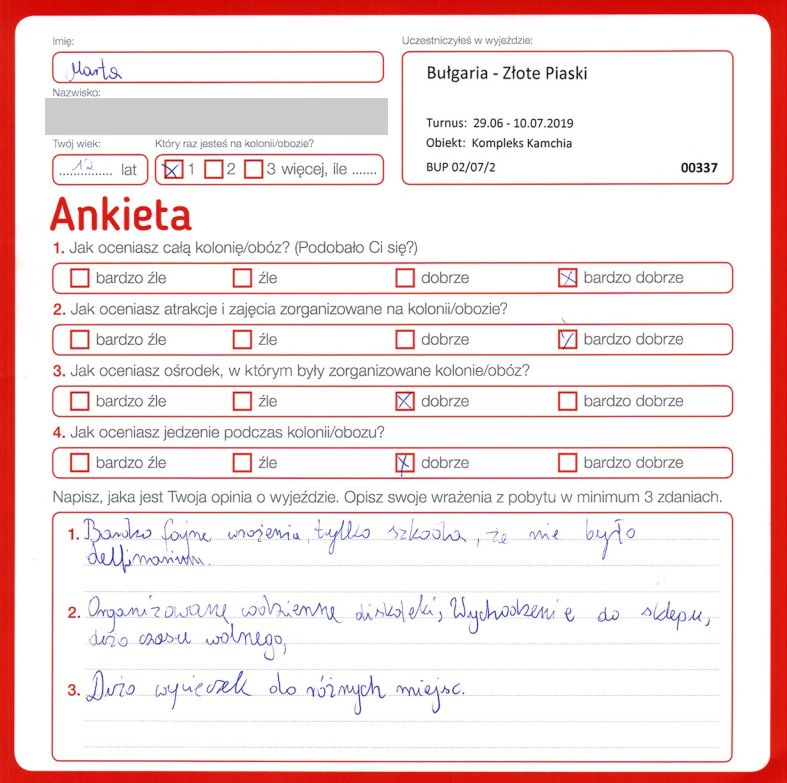 Imię:
Marta
Nazwisko:
Twój wiek:
12 lat
Który raz jesteś na kolonii/obozie?
1 2 3 więcej, ile .......
Uczestniczyłeś w wyjeździe:
Bułgaria - Złote Piaski
Turnus: 29.06 - 10.07.2019
Obiekt: Kompleks Kamchia
BUP 02/07/2 00337
Ankieta
1. Jak oceniasz całą kolonię/obóz? (Podobało Ci się?)
bardzo źle źle dobrze bardzo dobrze
2. Jak oceniasz atrakcje i zajęcia zorganizowane na kolonii/obozie?
bardzo źle źle dobrze bardzo dobrze
3. Jak oceniasz ośrodek, w którym były zorganizowane kolonie/obóz?
bardzo źle źle dobrze bardzo dobrze
4. Jak oceniasz jedzenie podczas kolonii/obozu?
bardzo źle źle dobrze bardzo dobrze
Napisz, jaka jest Twoja opinia o wyjeździe. Opisz swoje wrażenia z pobytu w minimum 3 zdaniach.
1. Bardzo fajne wrażenia, tylko szkoda, że nie było
delfinarium.
2. Organizowane codzienne diskoteki, Wychodzenie do sklepu,
dużo czasu wolnego,
3. Dużo wycieczek do różnych miejsc.